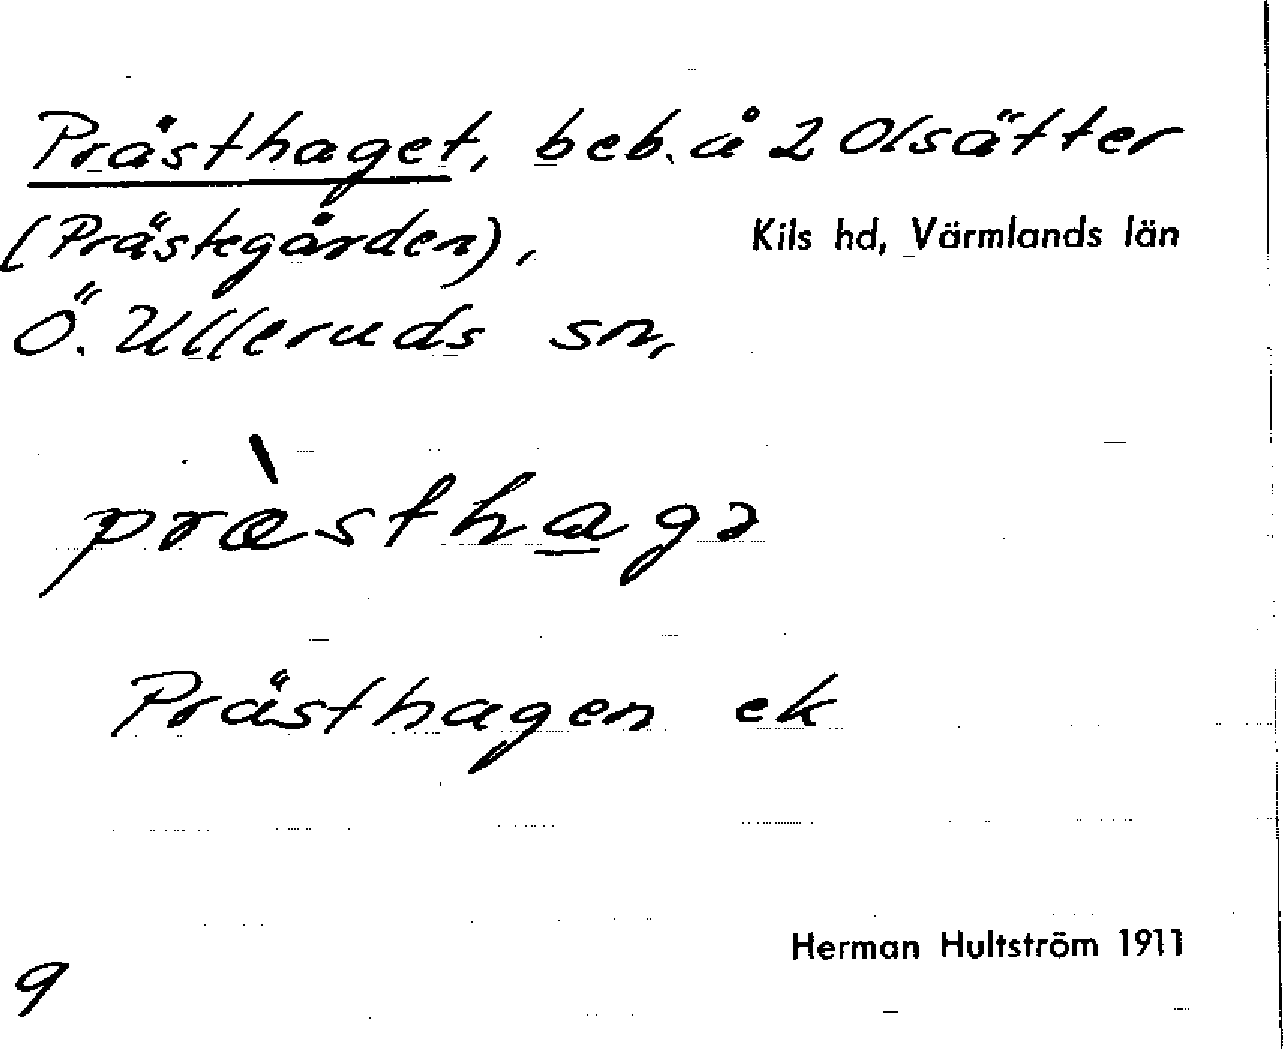 Prästhaget, beb. å 2 Olsätter
(Prästegården),
Kils hd, Värmlands län
Ö. Ulleruds sn,
præ̀sthagə
Prästhagen ek
Herman Hultström 1911
9